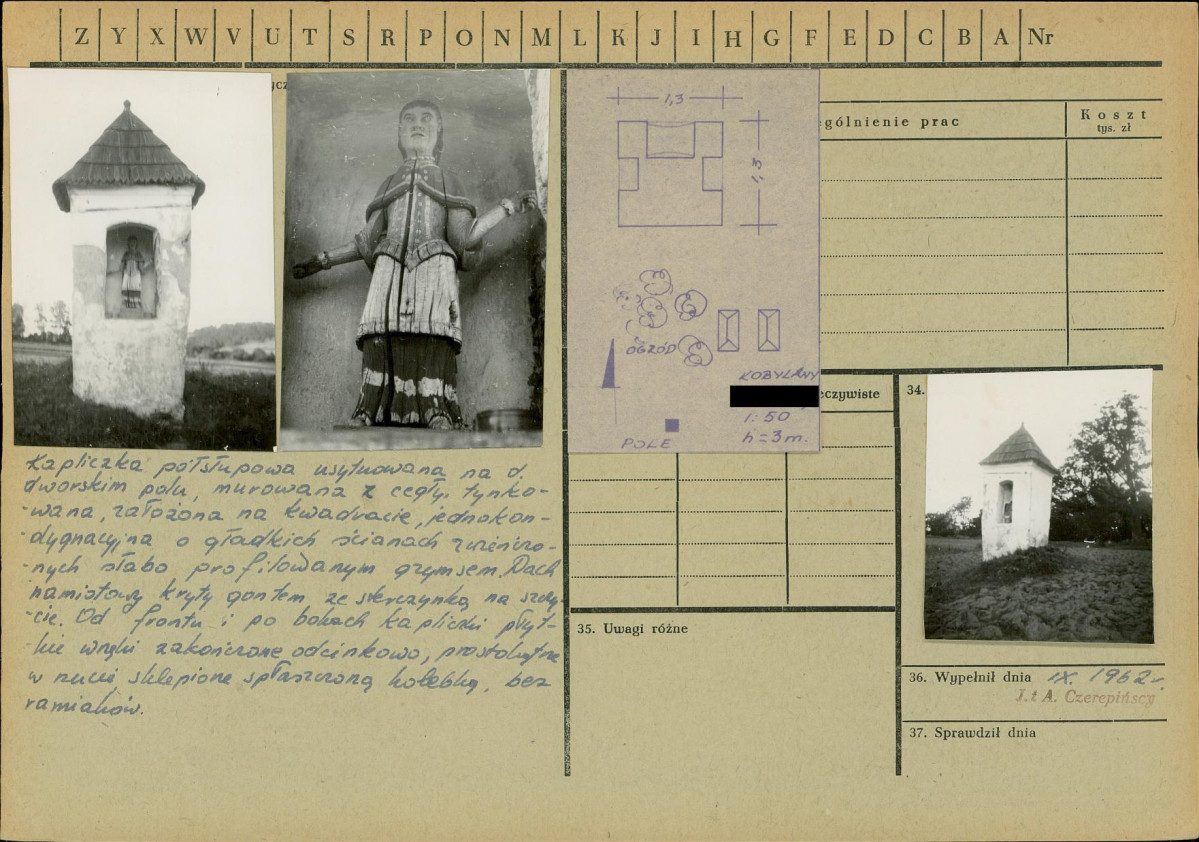 Z Y X W V U T S R P O N M L K J I H G F E D C B A Nr
ycz
Kapliczka półsłupowa usytuowana na d.
dworskim polu, murowana z cegły, tynko-
-wana, założona na kwadracie, jednokon-
-dygnacyjna o gładkich ścianach zwieńczo-
-nych słabo profilowanym gzymsem. Dach
namiotowy kryty gontem ze sterczynką na szczy-
-cie. Od frontu i po bokach kapliczki płyt-
-kie wnęki zakończone odcinkowo, prostokątne
w rzucie sklepione spłaszczoną kolebką, bez
ramiaków.
1,3
1,3
OGRÓD
KOBYLANY
1:50
h=3m.
POLE
gólnienie prac
Koszt
tys. zł
eczywiste
34.
35. Uwagi różne
36. Wypełnił dnia IX. 1962 r.
J. i A. Czerepińscy
37. Sprawdził dnia